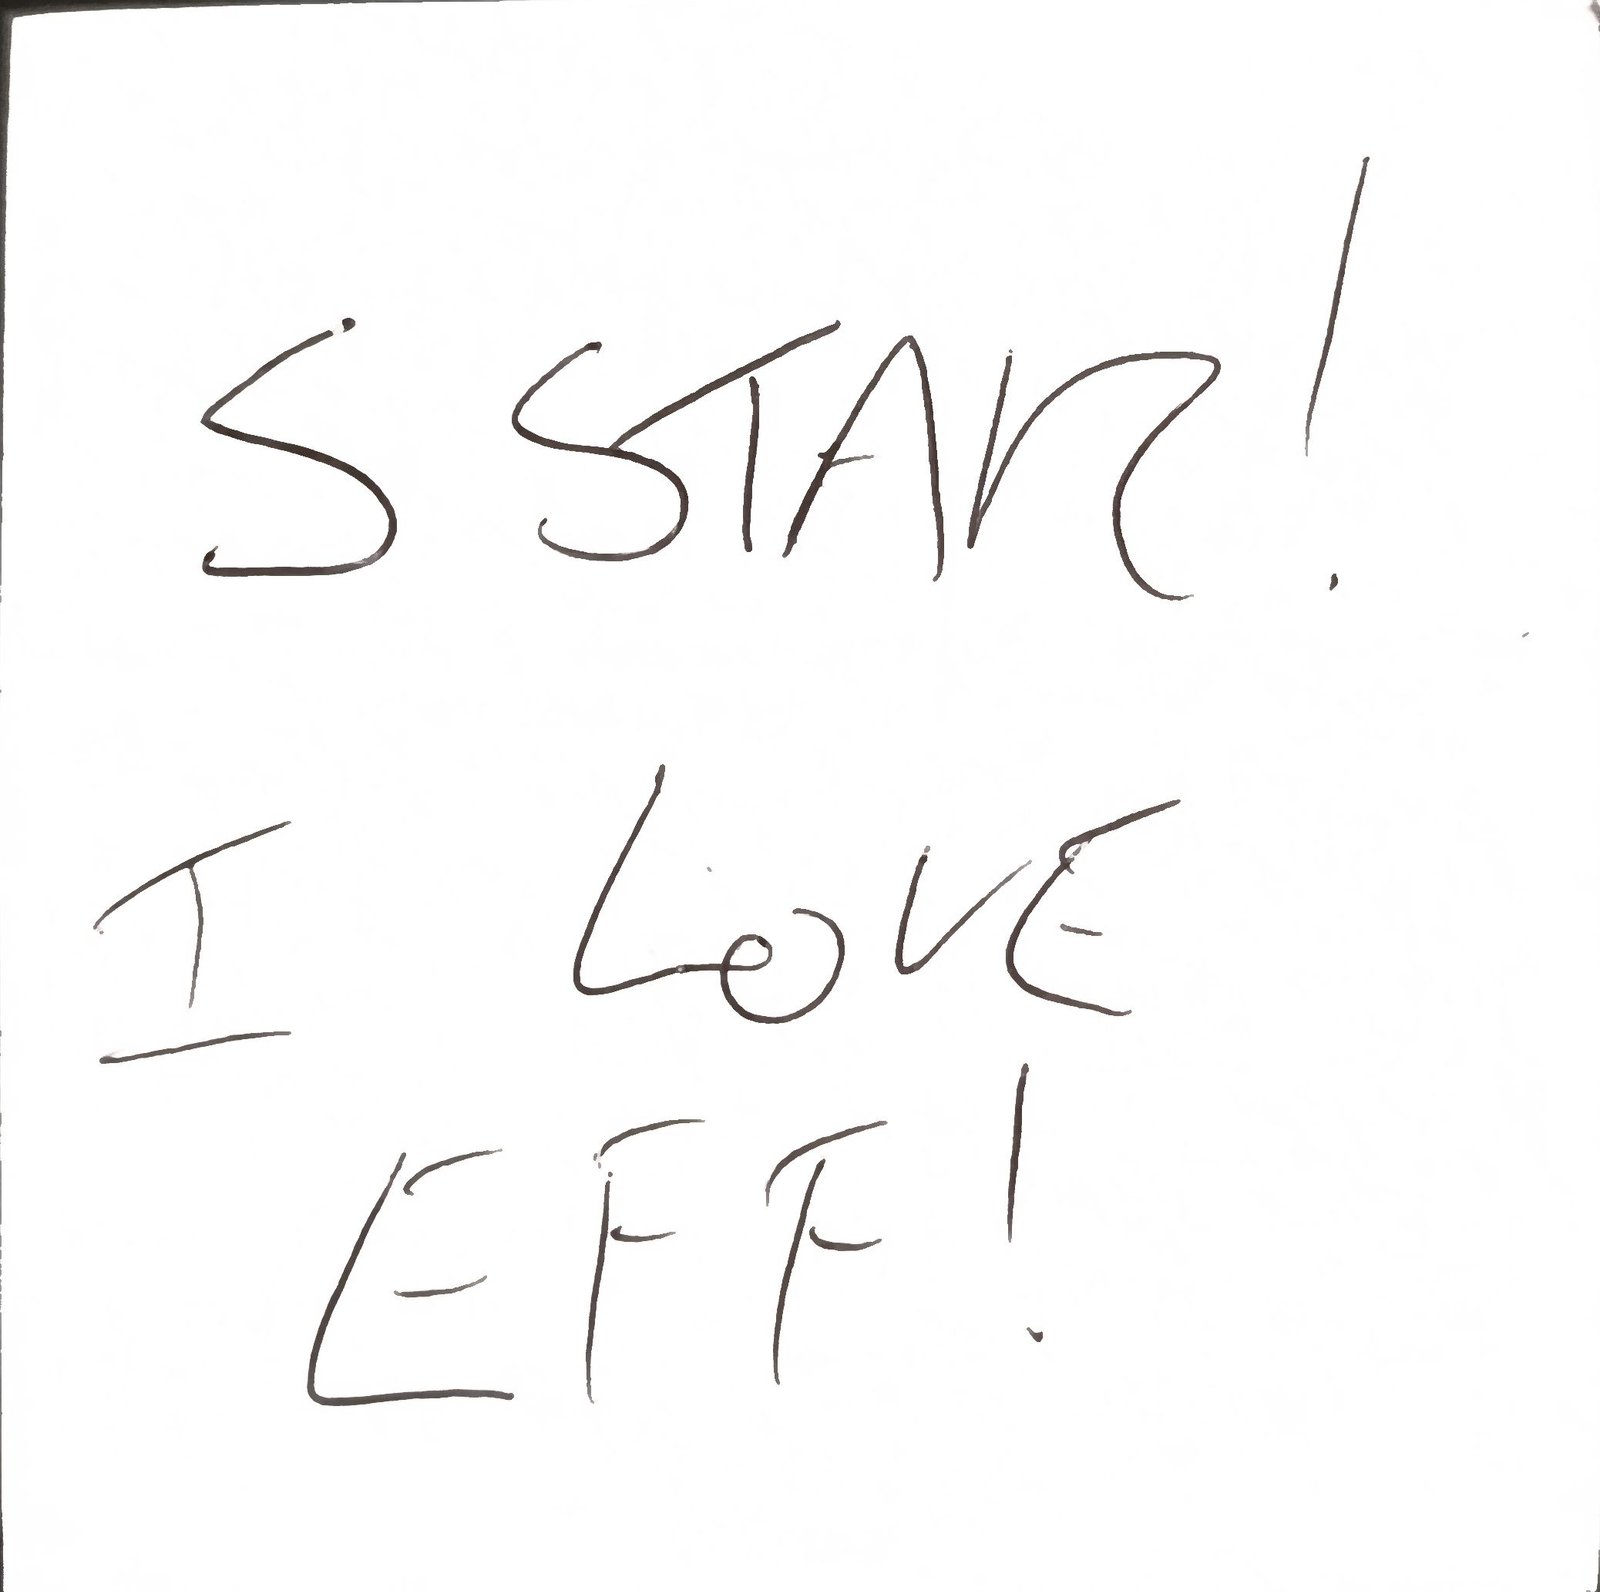 S STAR!
I LOVE
EFF!